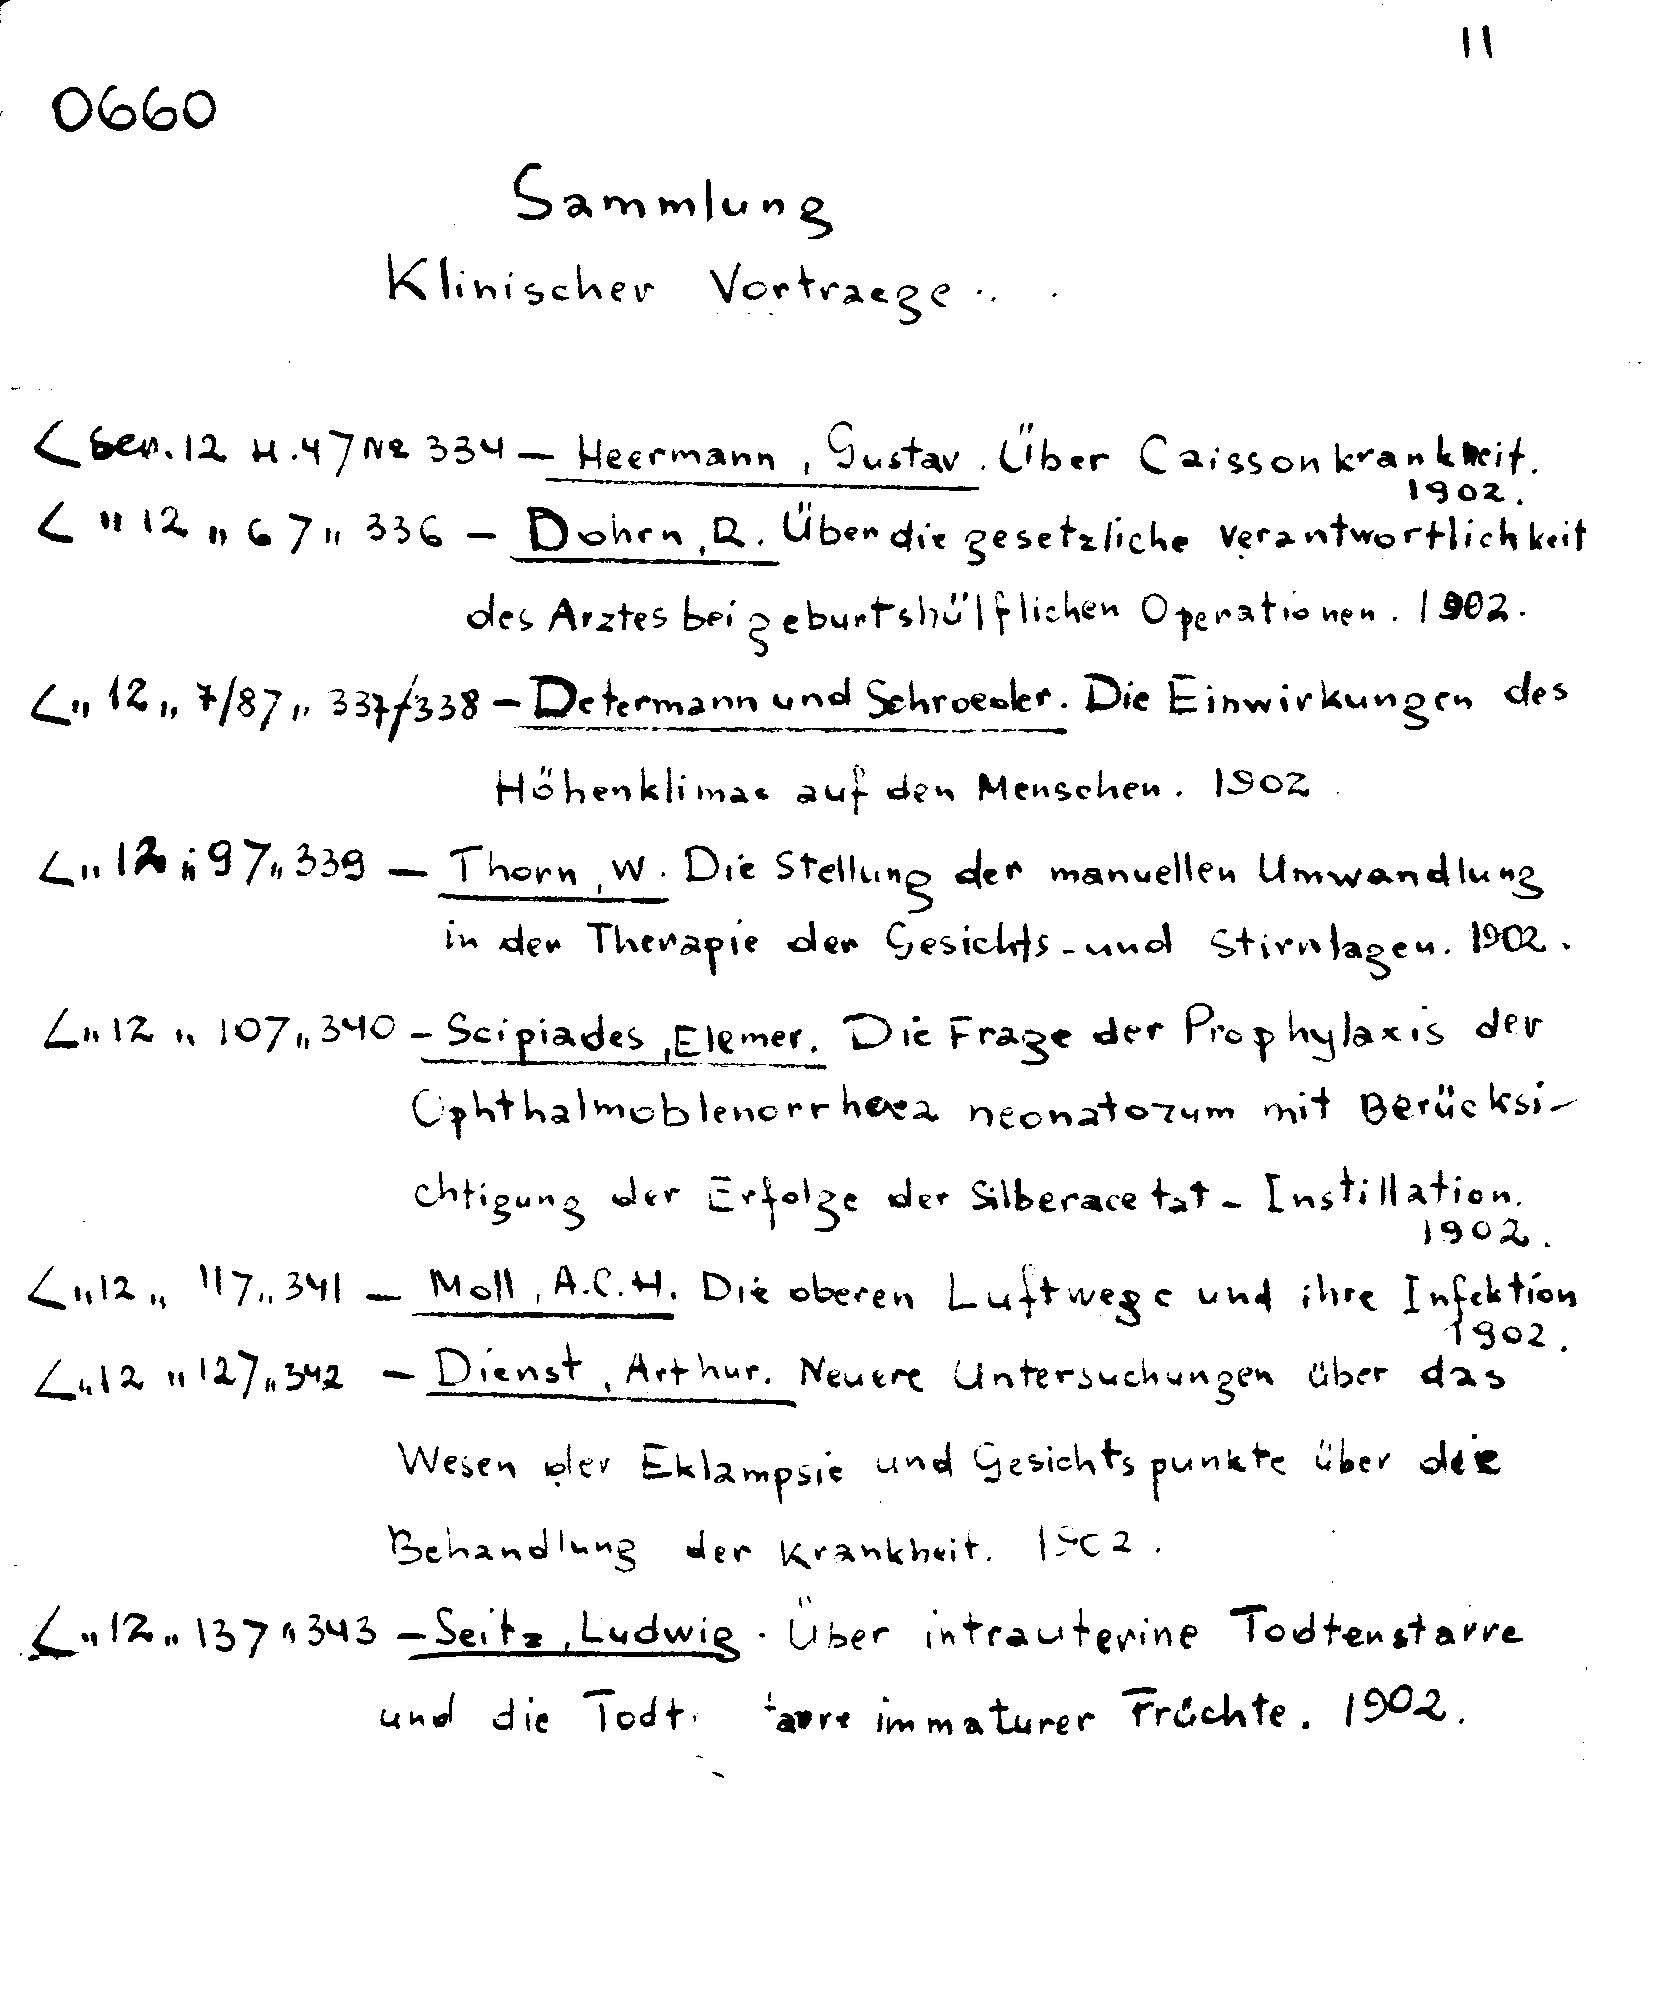 11
0660
Sammlung
Klinischer Vortraege..
[Ser. 12 H. 4] № 334 – Heermann, Gustav. Über Caissonkrankheit.
1902.
[ " 12 " 6] " 336 – Dohrn, R. Über die gesetzliche Verantwortlichkeit
des Arztes bei geburtshülflichen Operationen. 1902.
[ " 12 " 7/8] " 337/338 – Determann und Schroeder. Die Einwirkungen des
Höhenklimas auf den Menschen. 1902
[ " 12 " 9] " 339 – Thorn, W. Die Stellung der manuellen Umwandlung
in der Therapie der Gesichts- und Stirnlagen. 1902.
[ " 12 " 10] " 340 – Scipiades, Elemer. Die Frage der Prophylaxis der
Ophthalmoblenorrhoea neonatorum mit Berücksi-
chtigung der Erfolge der Silberacetat-Instillation.
1902.
[ " 12 " 11] " 341 – Moll, A.C.H. Die oberen Luftwege und ihre Infektion
1902.
[ " 12 " 12] " 342 – Dienst, Arthur. Neuere Untersuchungen über das
Wesen der Eklampsie und Gesichtspunkte über die
Behandlung der Krankheit. 1902.
[ " 12 " 13] " 343 – Seitz, Ludwig. Über intrauterine Todtenstarre
und die immaturer Früchte. 1902.